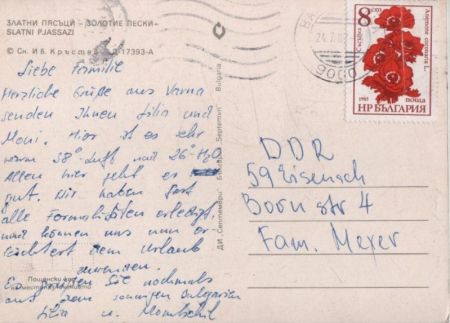 ЗЛАТНИ ПЯСЪЦИ - ЗОЛОТИЕ ПЕСКИ-
SLATNI PJASSAZI
© Сн. Ив. Кръстев Д-17393-А
Liebe Familie
Herzliche Grüße aus Varna
senden Ihnen Lilia und
Moni. Hier ist es sehr
warm 38° Luft und 26° H₂O
Allen hier geht es
gut. Wir haben fast
alle Formalitäten erledigt
und können uns nun er
leichtert dem Urlaub
zuwenden.
Es grüßen Sie nochmals
aus dem sonnigen Bulgarien
Lilia u. Momtschil
ДИ Септември Bulgaria
8 ст
Anemone coronaria L.
1985 поща
НР БЪЛГАРИЯ
9000
DDR
59 Eisenach
Bornstr 4
Fam. Meyer